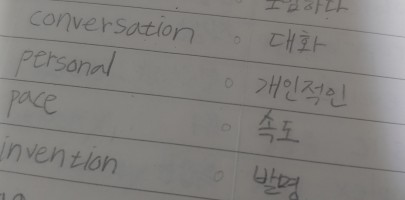 conversation 대화
personal 개인적인
pace 속도
invention 발명